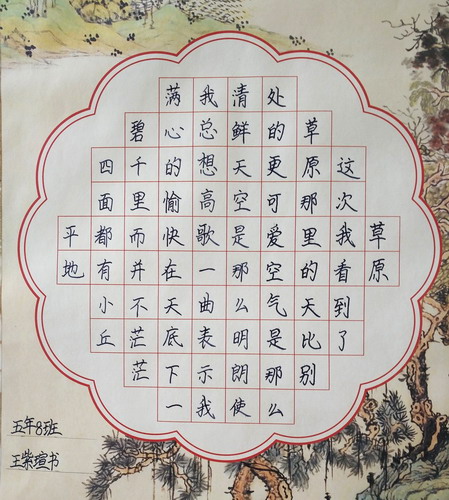 草原
这次我看到了
草原那里的天比别
处的更可爱空气是那么
清鲜天空是那么明朗使
我总想高歌一曲表示我
满心的愉快在天底下一
碧千里而并不茫茫
四面都有小丘
平地
五年8班
王紫瑄书